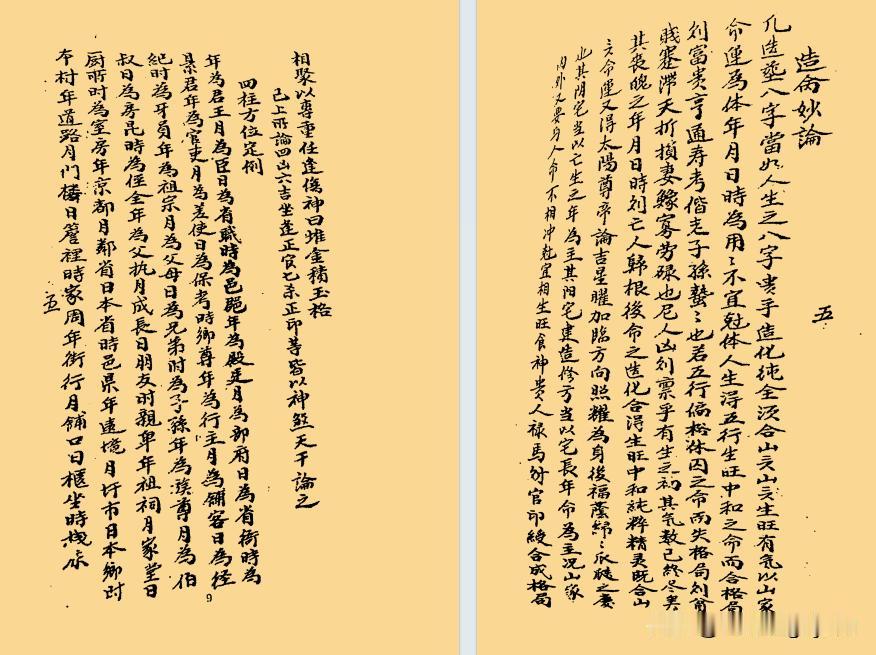 五
造命妙論
凡造塟八字當如人生之八字贵乎造化純全须合山头山头生旺有氣以山家
命運為体年月日時為用〻不宜尅体人生淂五行生旺中和之命而合格局
则富贵亨通寿考偕老子孫蟄〻也若五行偏枯休囚之命而失格局则貧
贱蹇滞夭折損妻鰥寡劳碌也凡人凶则禀乎有生之初其气数已终尽矣
其丧魄之年月日時则亡人歸根後命之造化合得生旺中和純粹精灵既合山
头命運又得太陽尊帝論吉星曜加臨方向照耀為身後福蔭綿〻瓜瓞之慶
也其阴宅当以亡生之年為主其阳宅建造修方当以宅長年命為主况山家
内外又要与人命不相冲尅宜相生旺食神贵人禄馬财官印綬合成格局
相聚以專重任逢傷神曰堆金積玉格
已上所論四山六吉坐逢正官七杀正印等皆以神煞天干論之
四柱方位定例
年為君王月為臣日為省職時為邑年為殿廷月為部府日為省衙時為
県君年為官吏月為差使日為保考時鄉尊年為行主月為鋪客日為经
紀时為牙員年為祖宗月為父母日為兄弟时為子孫年為族尊月為伯
叔日為房昆時為侄全年為父执月成長日朋友时親卑年祖祠月家堂日
厨所时為室房年京都月鄰省日本省時邑県年遠境月圩市日本鄉时
本村年道路月门樓日簷裡時家周年街行月铺口日櫃坐時栈房
五
9